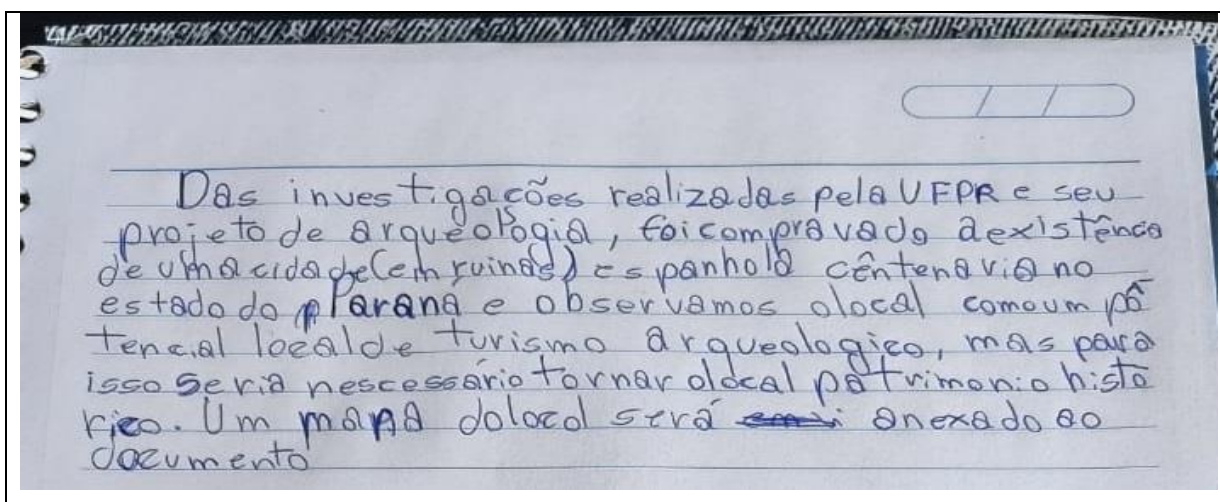 Das investigacões realizadas pela UFPR e seu
projeto de arqueologia, foi compravado a existência
de uma cidade (em ruinas) espanhola centenaria no
estado do Parana e observamos o local como um pô
tencial local de turismo arqueologico, mas para
isso seria nescessário tornar o local pâtrimonio histó
rico. Um mapa do local será anexado ao
documento